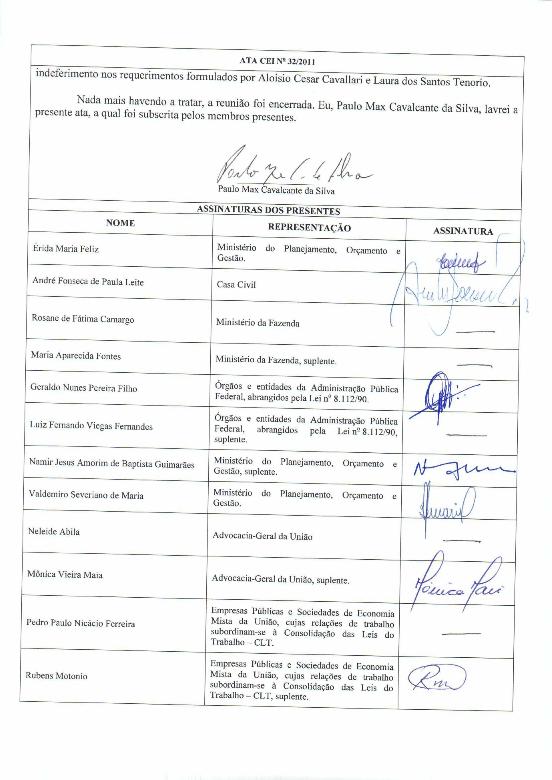 ATA CEI Nº 32/2011
indeferimento nos requerimentos formulados por Aloisio Cesar Cavallari e Laura dos Santos Tenorio.
Nada mais havendo a tratar, a reunião foi encerrada. Eu, Paulo Max Cavalcante da Silva, lavrei a
presente ata, a qual foi subscrita pelos membros presentes.
Paulo Max Cavalcante da Silva
ASSINATURAS DOS PRESENTES
NOME REPRESENTAÇÃO ASSINATURA
Érida Maria Feliz
Ministério do Planejamento, Orçamento e
Gestão.
André Fonseca de Paula Leite
Casa Civil
Rosane de Fátima Camargo
Ministério da Fazenda
Maria Aparecida Fontes
Ministério da Fazenda, suplente.
Geraldo Nunes Pereira Filho
Órgãos e entidades da Administração Pública
Federal, abrangidos pela Lei nº 8.112/90.
Luiz Fernando Viegas Fernandes
Órgãos e entidades da Administração Pública
Federal, abrangidos pela Lei nº 8.112/90,
suplente.
Namir Jesus Amorim de Baptista Guimarães
Ministério do Planejamento, Orçamento e
Gestão, suplente.
Valdemiro Severiano de Maria
Ministério do Planejamento, Orçamento e
Gestão.
Neleide Abila
Advocacia-Geral da União
Mônica Vieira Maia
Advocacia-Geral da União, suplente.
Mônica
Pedro Paulo Nicácio Ferreira
Empresas Públicas e Sociedades de Economia
Mista da União, cujas relações de trabalho
subordinam-se à Consolidação das Leis do
Trabalho – CLT.
Rubens Motonio
Empresas Públicas e Sociedades de Economia
Mista da União, cujas relações de trabalho
subordinam-se à Consolidação das Leis do
Trabalho – CLT, suplente.